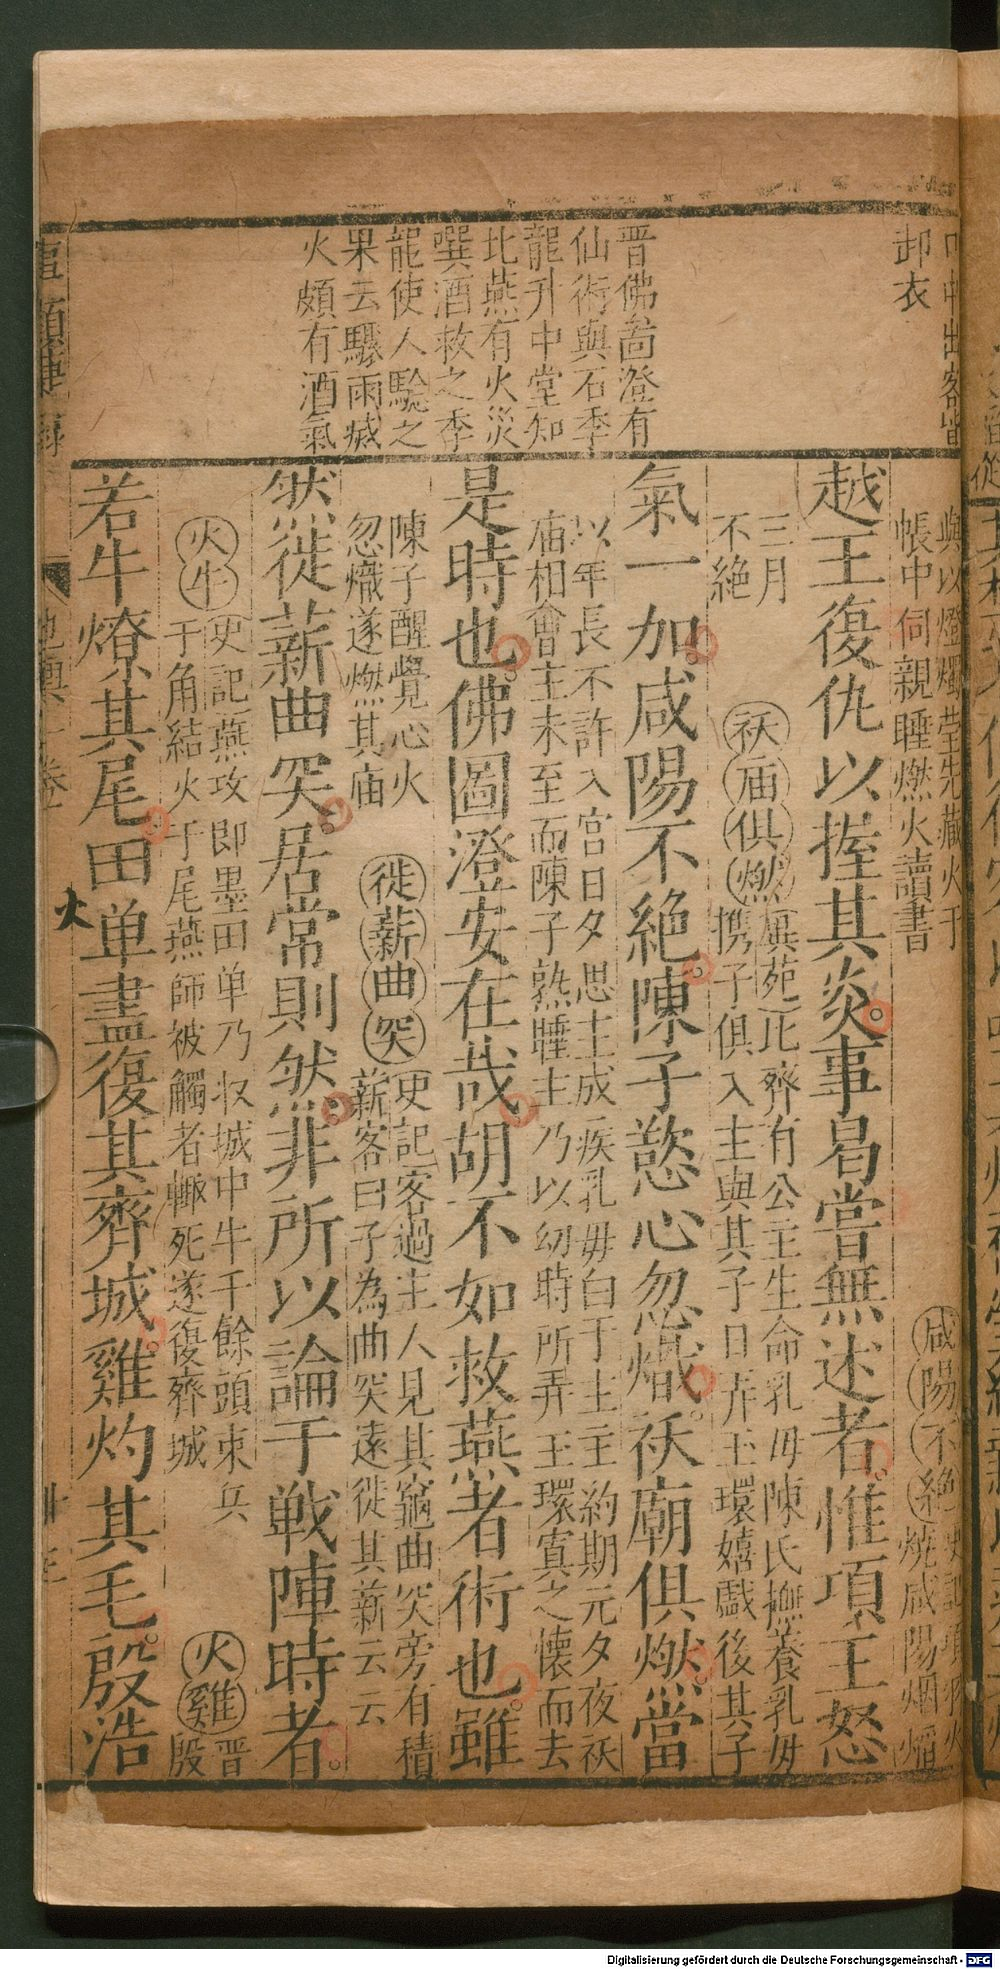 口中出客皆
卸衣
晋佛啚澄有
仙術與石季
龍升中堂知
北燕有火災
噀酒救之季
龍使人騐之
果云驟雨滅
火頗有酒氣
與以燈燭瑩先藏火于
帳中伺親睡燃火讀書
咸陽不絶史記項羽火
燒咸陽烟熖
越王復仇以握其炎事曷嘗無述者惟項王怒
三月
不絶
祆庙俱燃
蜀苑北齊有公主生命乳母陳氏撫養乳母
携子俱入主與其子日弄玉環嬉戲後其子
氣一加咸陽不絶陳子慾心忽熾祆廟俱燃當
以年長不許入宮日夕思主成疾乳母白于主主約期元夕夜祆
庙相會主未至而陳子熟睡主乃以幼時所弄玉環寘之懐而去
是時也佛圖澄安在哉胡不如救燕者術也雖
陳子醒覺心火
忽熾遂燃其庙
徙薪曲突
史記客過主人見其竈曲突旁有積
薪客曰子為曲突遠徙其薪云云
然徙薪曲突居常則然非所以論于戦陣時者
火牛
史記燕攻即墨田单乃収城中牛千餘頭束兵
于角結火于尾燕師被觸者輙死遂復齊城
火雞
晋
殷
若牛燎其尾田单盡復其齊城雞灼其毛殷浩
火
事類捷録
地輿
卷
Digitalisierung gefördert durch die Deutsche Forschungsgemeinschaft - DFG